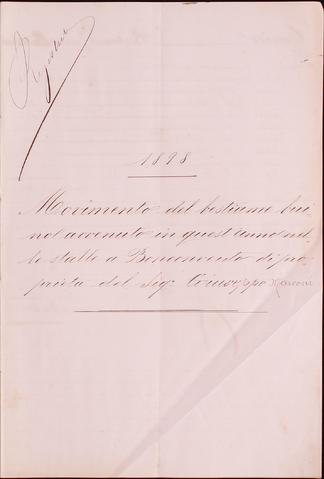 1898
Movimento del bestiame bui
no avvenuto in quest'anno nel
le stalle a Bonconvento di pro
prietà del Sigr. Giuseppe